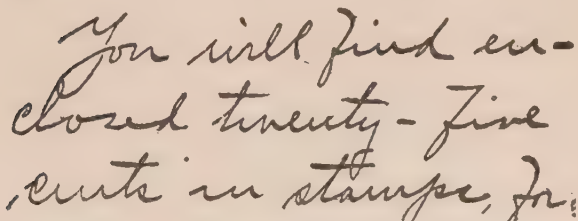 You will find en-
closed twenty-five
cents in stamps, for